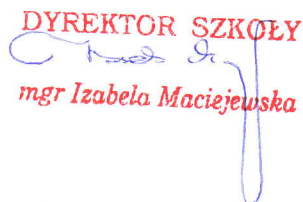 DYREKTOR SZKOŁY
mgr Izabela Maciejewska